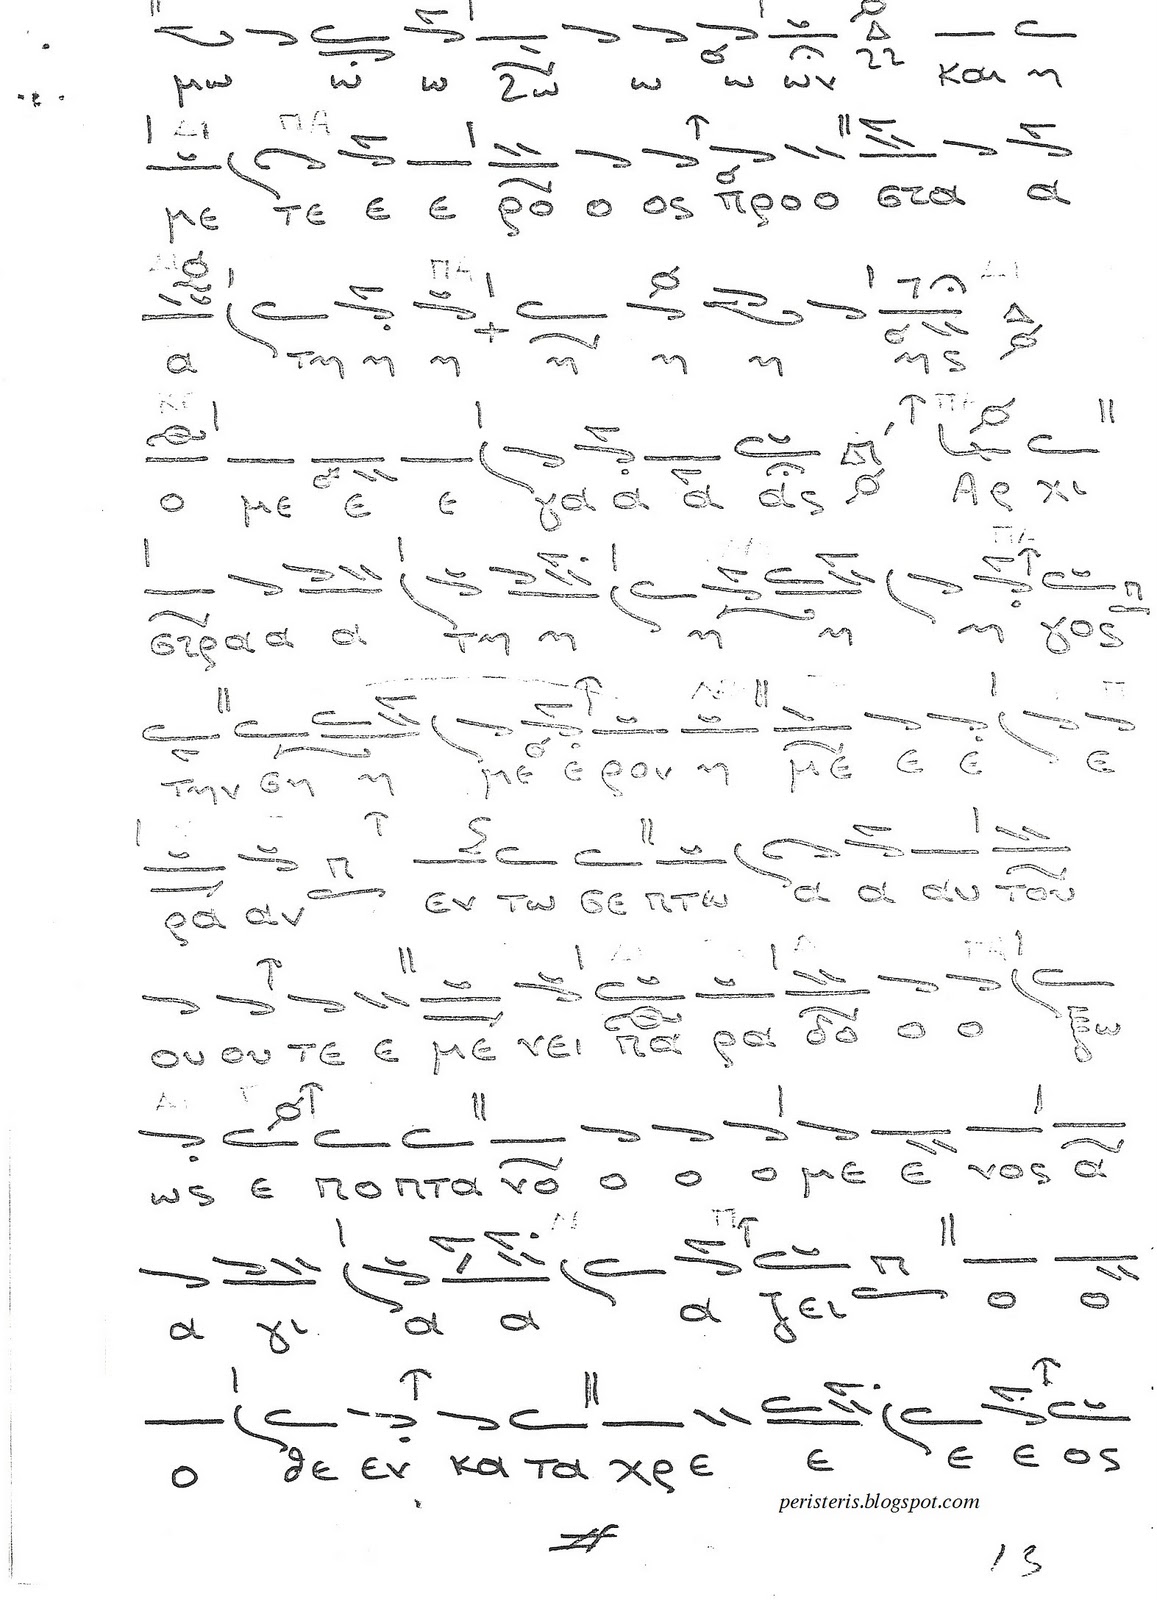 μω ω ω ζω ω ω ων και η
με τε ε ε ρο ο ος προο στα α
α τη η η η η η ης
ο με ε ε γα α α ας Αρ χι
στρα α α τη η η η η γος
την ση η με ε ρον η με ε ε ε
ρα αν εν τω σε πτω α α αυ του
ου ου τε ε με νει πα ρα δο ο ο ξω
ως ε πο πτα νο ο ο ο με ε νος α
α γι α α α ζει ο ο
ο θε εν κα τα χρε ε ε ε ος
peristeris.blogspot.com
13